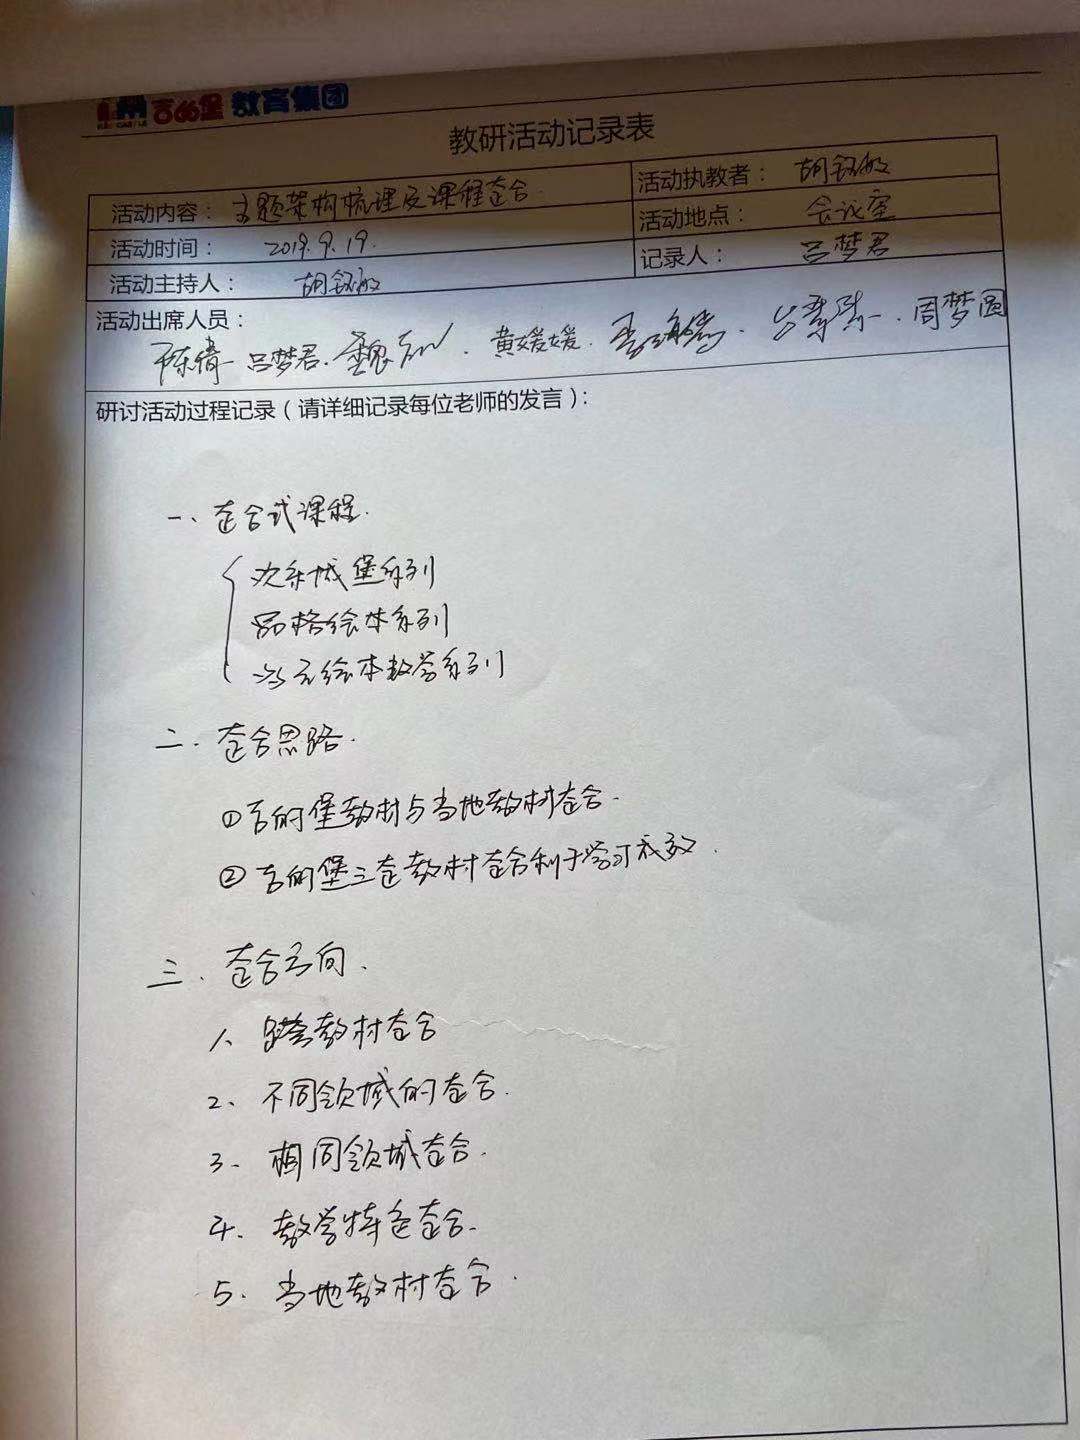 吉的堡 教育集团
教研活动记录表
活动内容：主题架构梳理及课程整合 活动执教者：胡钰敏
活动时间：2019.9.19. 活动地点：会议室
活动主持人：胡钰敏 记录人：吕梦君
活动出席人员：
陈倩 吕梦君. 魏 . 黄媛媛. 李 . . 周梦圆
研讨活动过程记录（请详细记录每位老师的发言）：
一、整合式课程.
欢乐城堡系列
品格绘本系列
多元绘本教学系列
二. 整合思路.
①吉的堡教材与当地教材整合.
②吉的堡三套教材整合利于学习成效.
三. 整合方向.
1、跨教材整合
2、不同领域的整合.
3. 相同领域整合.
4. 教学特色整合.
5. 当地教材整合.